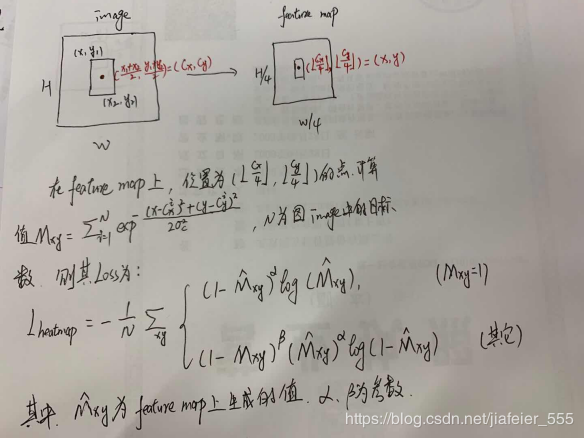 image
feature map
(x₁, y₁)
(x₁+x₂/2, y₁+y₂/2)=(Cx, Cy)
(x₂, y₂)
H
W
H/4
(⌊Cx/4⌋, ⌊Cy/4⌋)=(x, y)
W/4
在feature map上, 位置为(⌊Cx/4⌋, ⌊Cy/4⌋)的点.计算
值Mxy = ∑ᵢ₌₁ᴺ exp^-((x-Cxⁱ)²+(y-Cyⁱ)²/2σc²), N为图image中的目标
数. 则其Loss为:
Lheatmap = -1/N ∑xy { (1-M̂xy)^α log(M̂xy), (Mxy=1)
(1-Mxy)^β (M̂xy)^α log(1-M̂xy) (其它)
其中. M̂xy为feature map上生成的值. α、β为参数.
https://blog.csdn.net/jiafeier_555